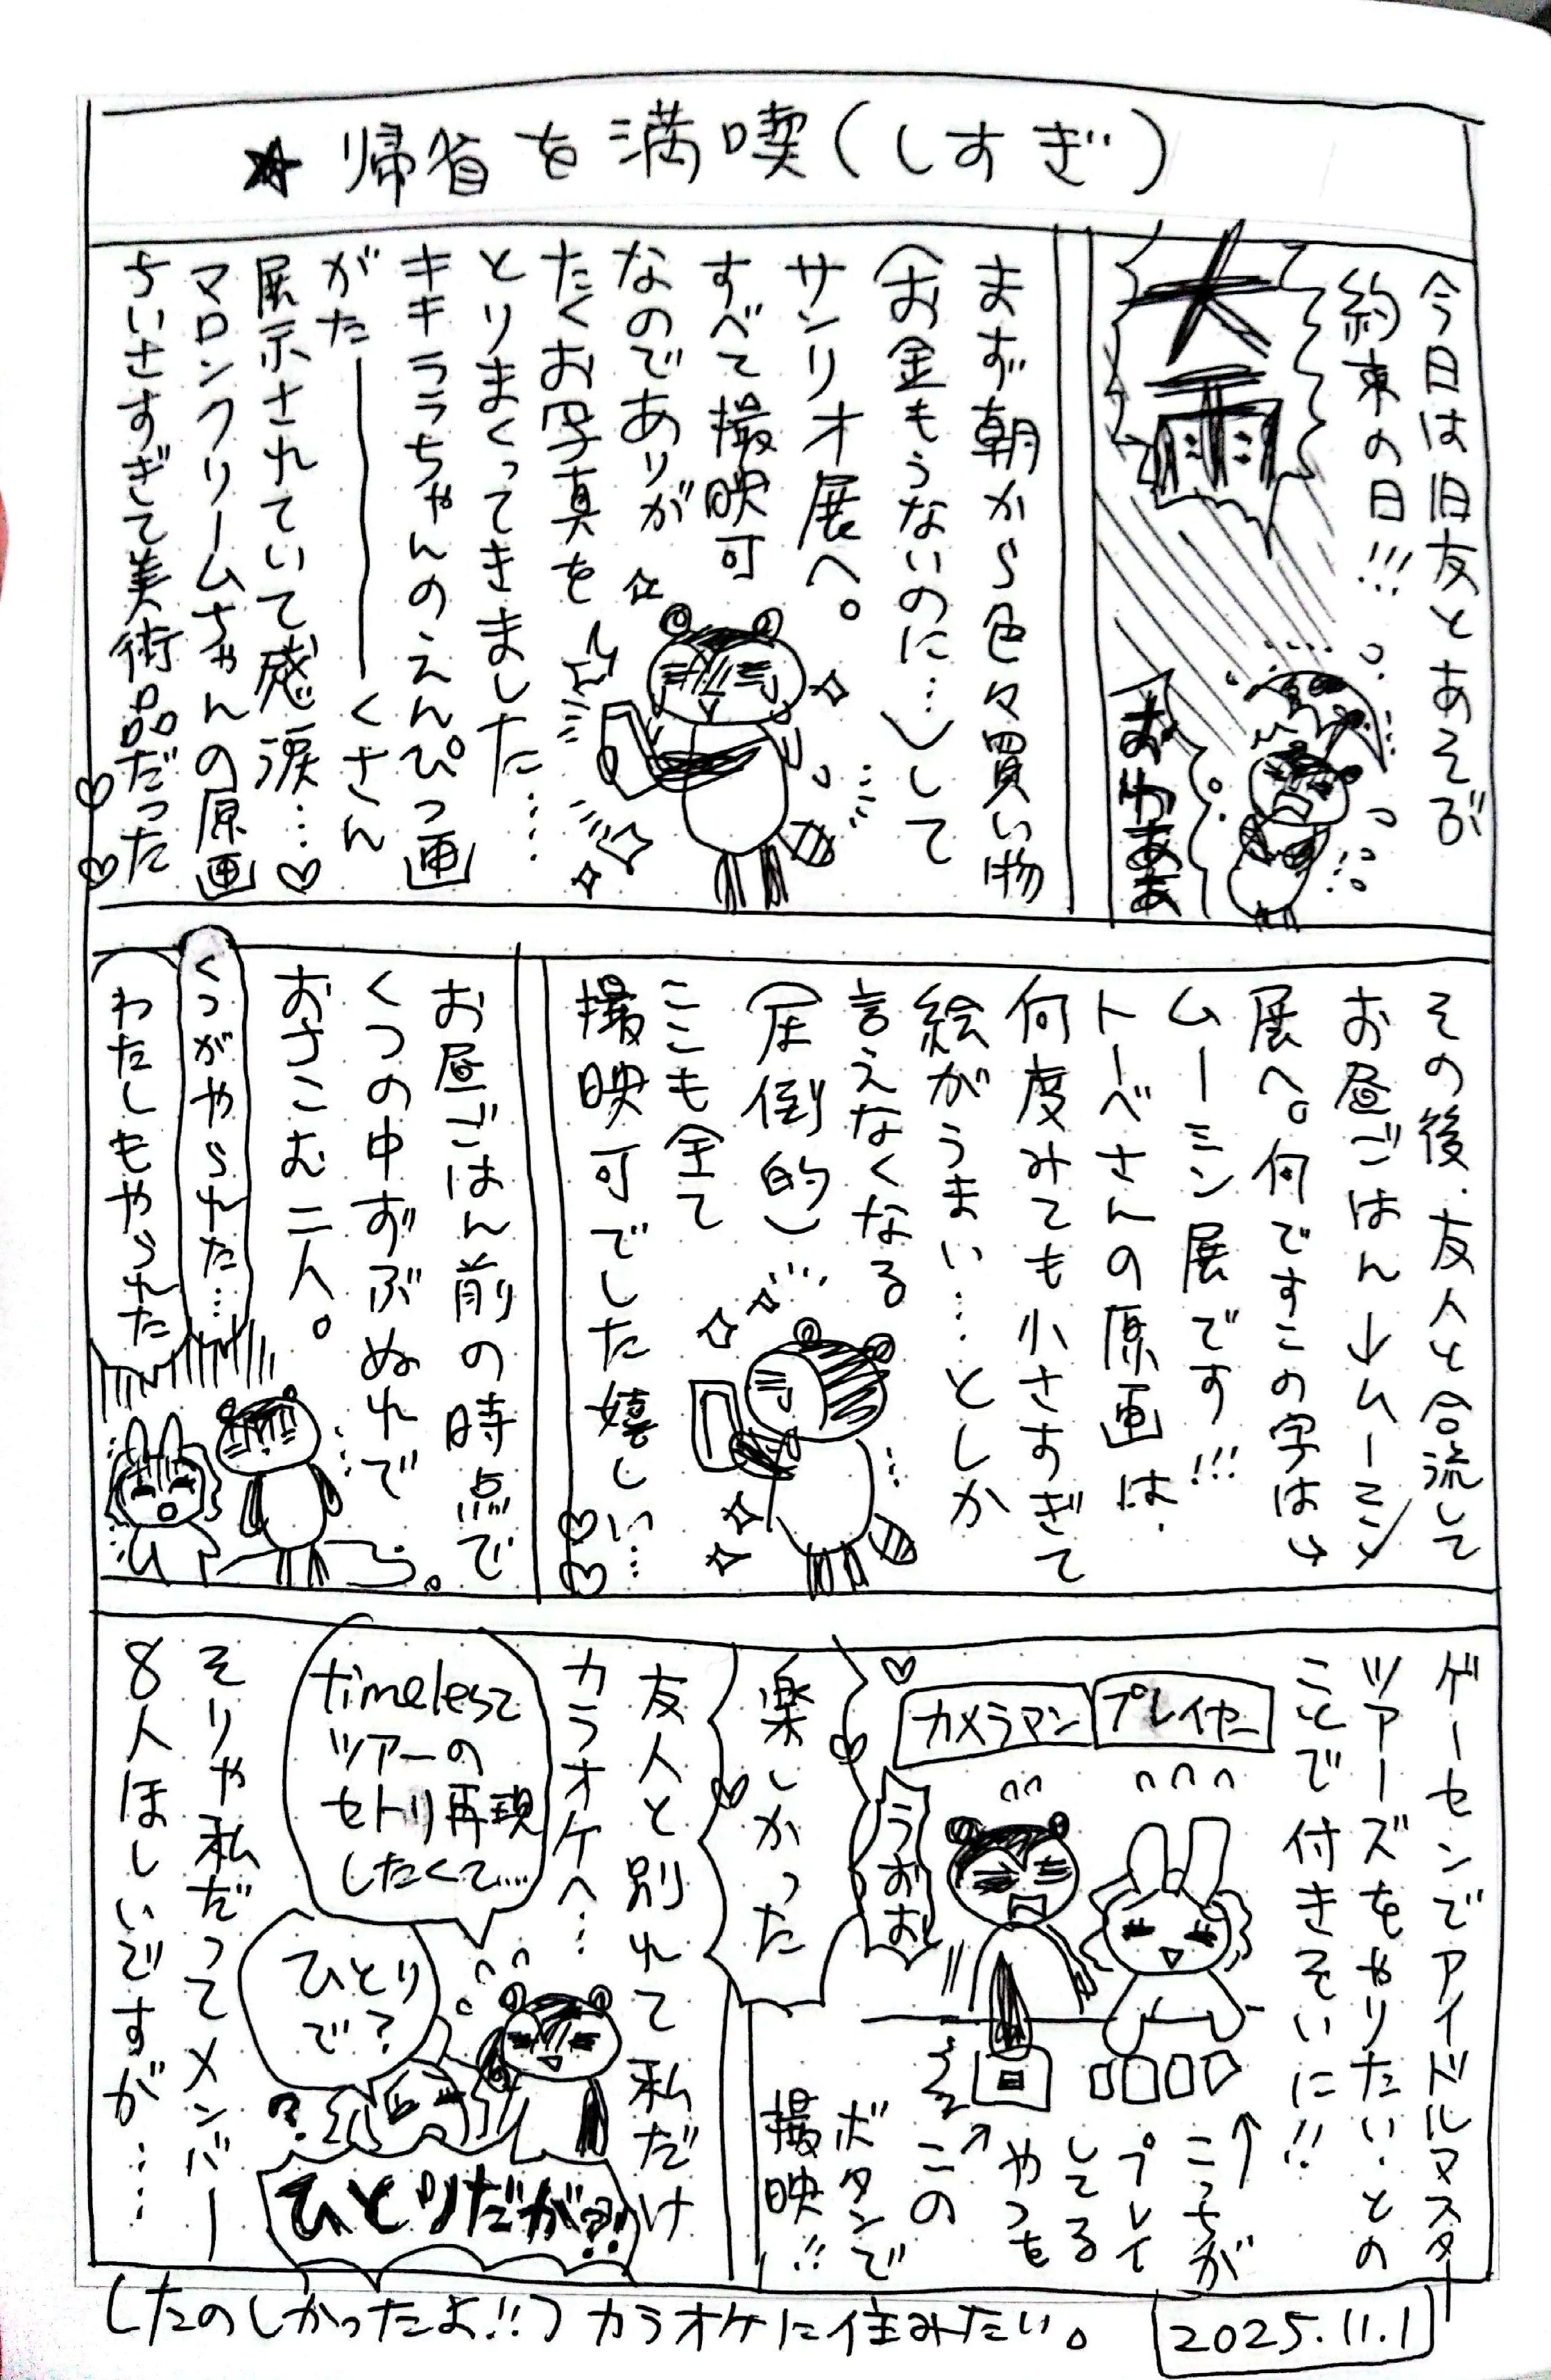 ★帰省を満喫(しすぎ)
今日は旧友とあそぶ
約束の日!!!
大雨
おわああ
まず朝から色々買い物
(お金もうないのに…)して
サンリオ展へ。
すべて撮映可
なのでありが
たくお写真を
とりまくってきました……
キキララちゃんのえんぴつ画
がた――――くさん
展示されていて感涙…♡
マロンクリームちゃんの原画
ちいさすぎて美術品だった♡♡
その後、友人と合流して
お昼ごはん→ムーミン
展へ。何ですこの字は→
ムーミン展です!!!
トーベさんの原画は、
何度みても小さすぎて
絵がうまい…としか
言えなくなる
(圧倒的)
ここも全て
撮映可でした嬉しい…♡♡
お昼ごはん前の時点で
くつの中ずぶぬれで
おちこむ二人。
くつがやられた…
わたしもやられた
ゲーセンでアイドルマスター
ツアーズをやりたい、との
ことで付きそいに!!
プレイヤー
カメラマン
うおお
こっちが
プレイ
してる
やつを
この
ボタンで
撮映!!
楽しかった
友人と別れて私だけ
カラオケへ…
timelesz
ツアーの
セトリ再現
したくて…
ひとり
で?
?
ひとりだが?!
そりゃ私だってメンバー
8人ほしいですが……
(たのしかったよ!!)カラオケに住みたい。
2025.11.1